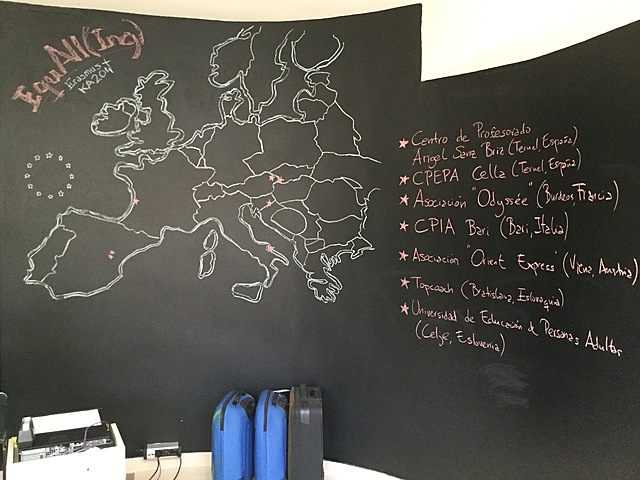 EquAll(Ing)
Erasmus+
KA204
Centro de Profesorado
Ángel Sanz Briz (Teruel, España)
CPEPA Cella (Teruel, España)
Asociación "Odyssée" (Burdeos, Francia)
CPIA Bari (Bari, Italia)
Asociación "Orient Express" (Viena, Austria)
Topcoach (Bratislava, Eslovaquia)
Universidad de Educación de Personas Adultas
(Celje, Eslovenia)